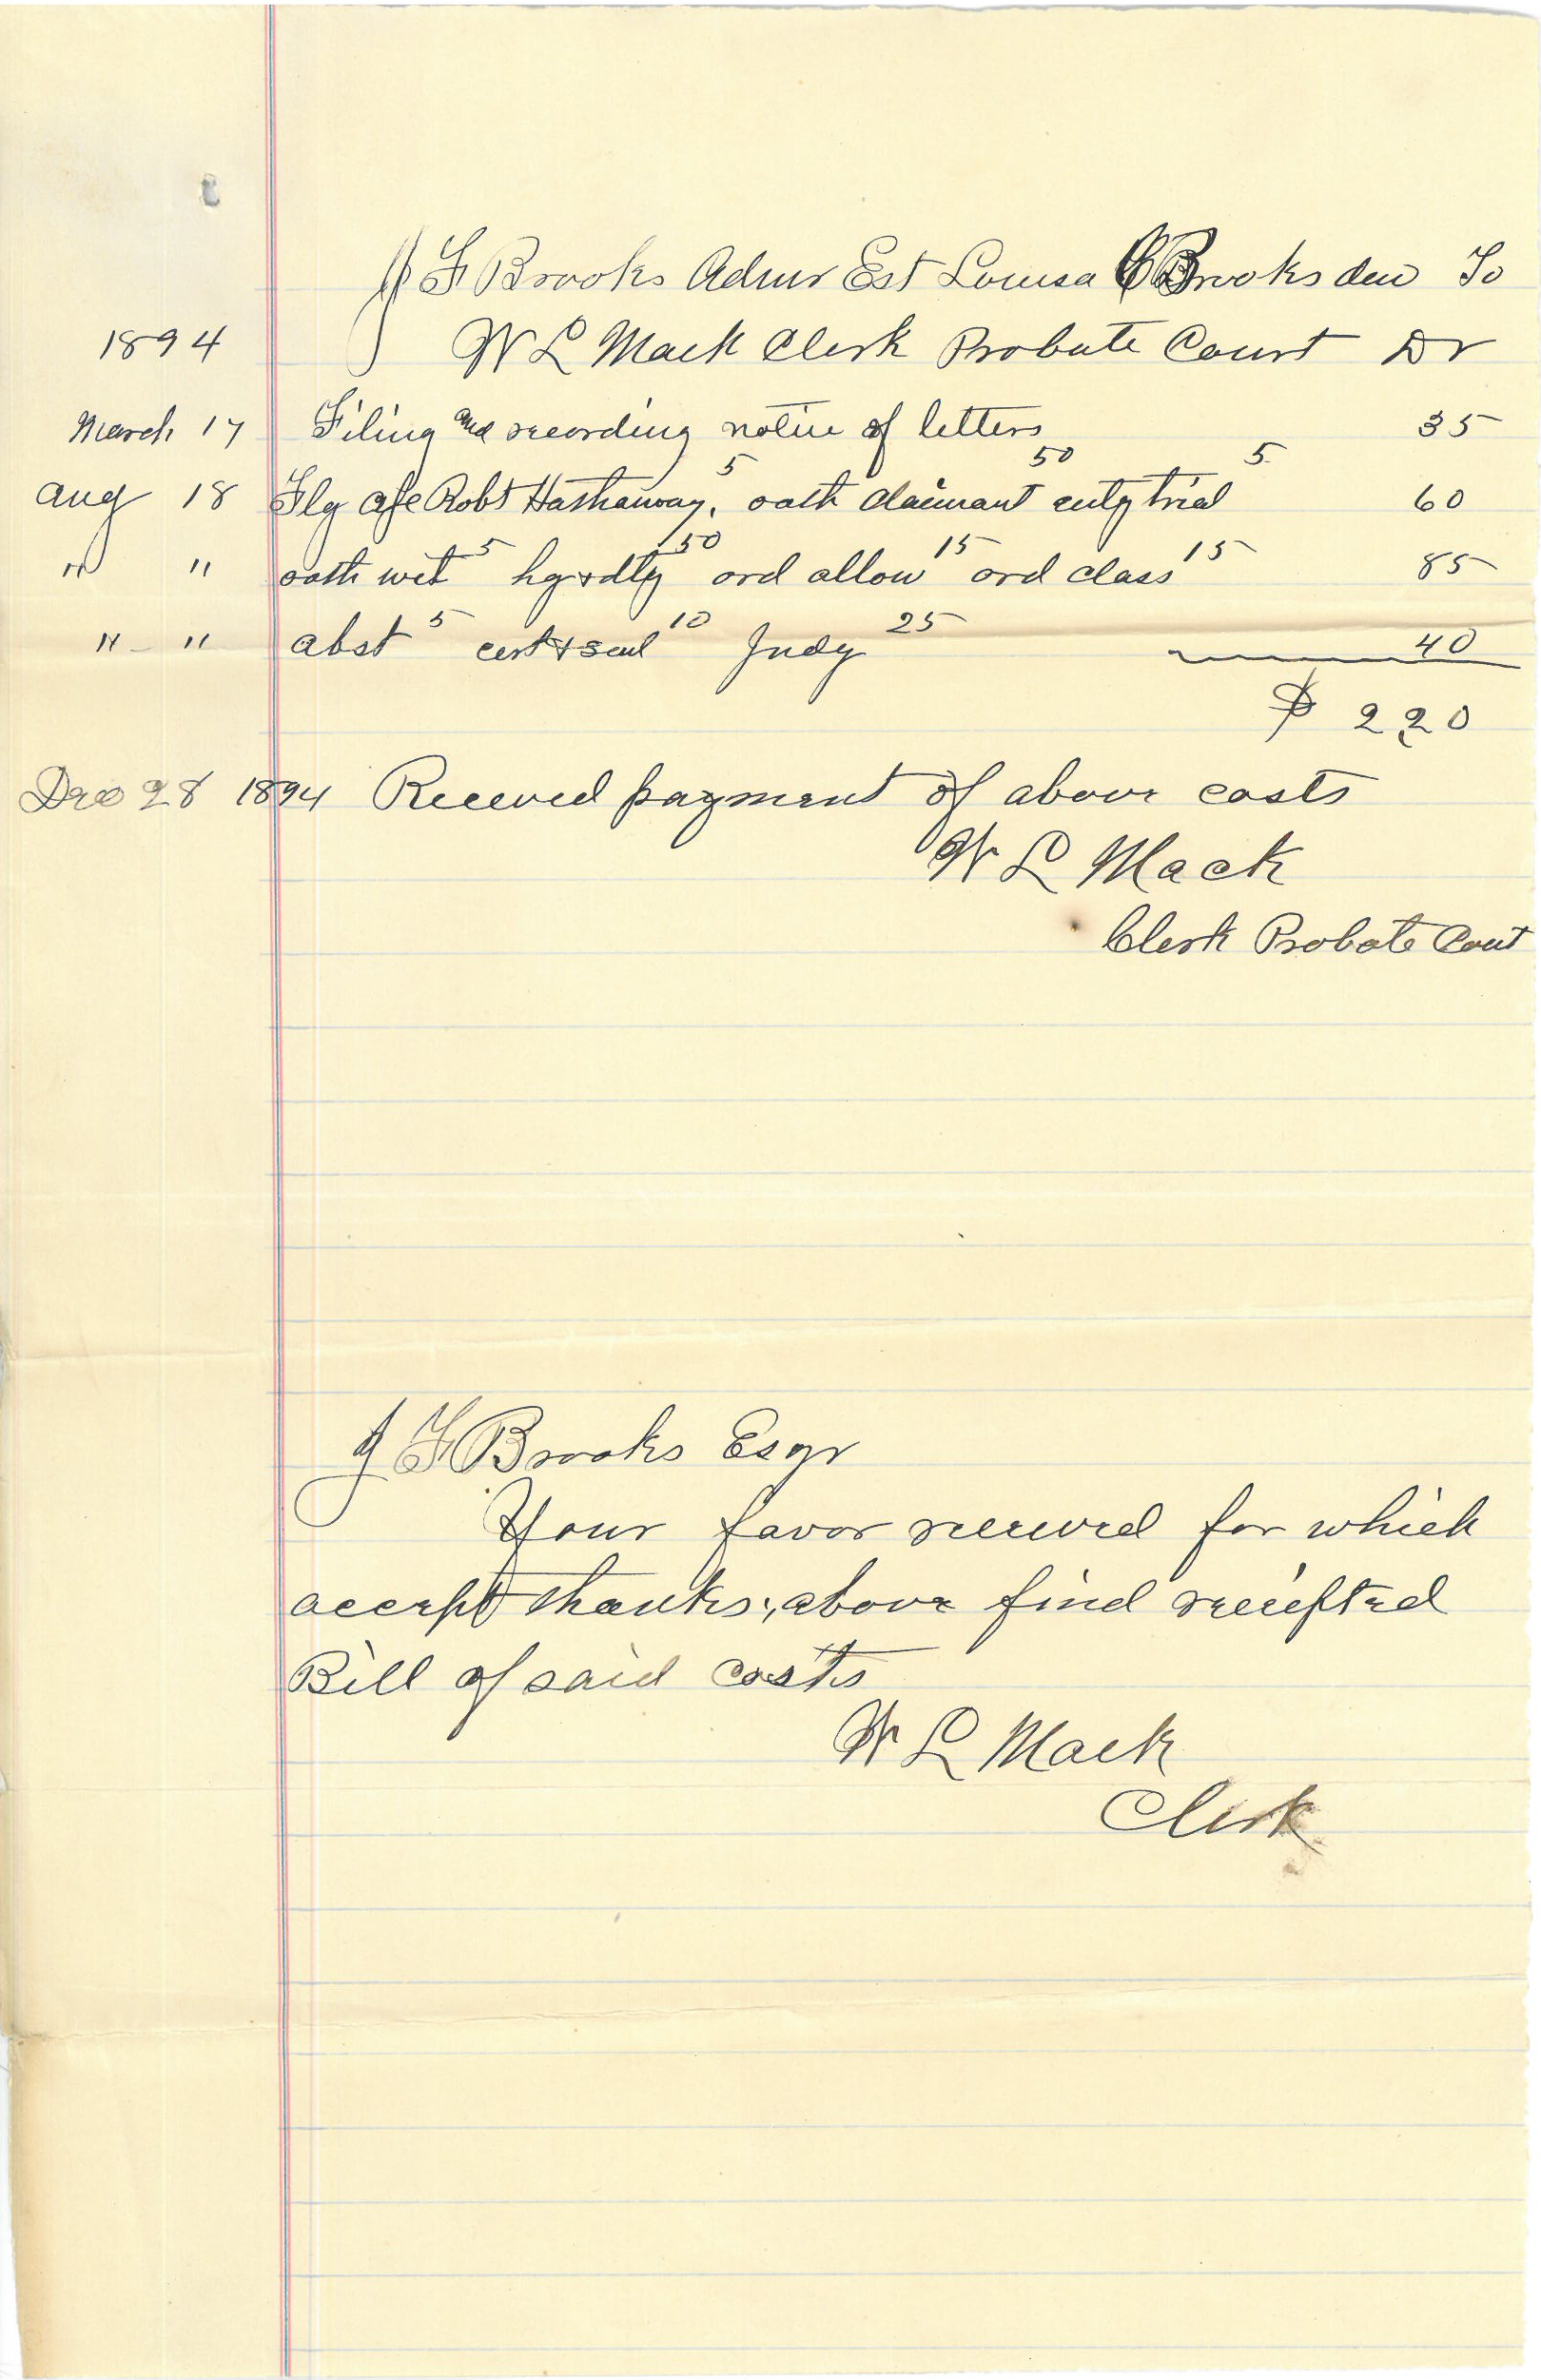 J F Brooks Admr Est Louisa C Brooks decd To
1894 W L Mack Clerk Probate Court Dr
March 17 Filing and recording notice of letters 35
Aug 18 Flg afe Robt Hathaway, 5 oath claimant 50 entg trial 5 60
" " oath wit 5 hg & dtg 50 ord allow 15 ord class 15 85
" " abst 5 cert & seal 10 Judg 25 40
$ 2 20
Dec 28 1894 Received payment of above costs
W L Mack
Clerk Probate Court
J F Brooks Esqr
Your favor received for which
accept thanks, above find receipted
Bill of said costs
W L Mack
Clerk